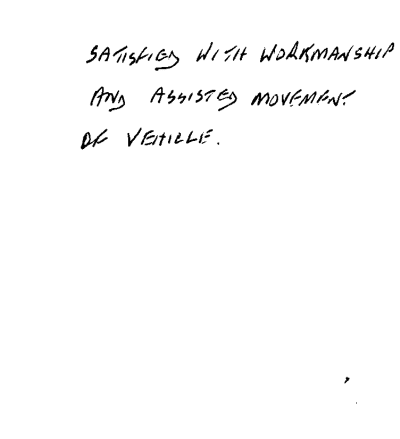 SATISFIED WITH WORKMANSHIP
AND ASSISTED MOVEMENT
OF VEHICLE.